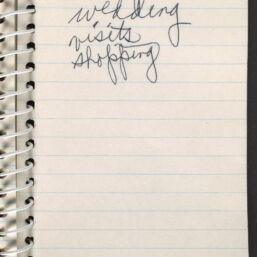 wedding
visits
shopping